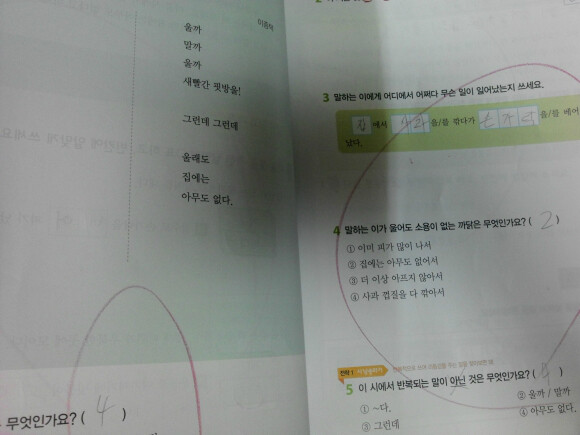 이종택
울까
말까
울까
새빨간 핏방울!
그런데 그런데
울래도
집에는
아무도 없다.
무엇인가요? ( 4 )
2
3 말하는 이에게 어디에서 어쩌다 무슨 일이 일어났는지 쓰세요.
집 에서 사과 을/를 깎다가 손가락 을/를 베어
났다.
4 말하는 이가 울어도 소용이 없는 까닭은 무엇인가요? ( 2 )
① 이미 피가 많이 나서
② 집에는 아무도 없어서
③ 더 이상 아프지 않아서
④ 사과 껍질을 다 깎아서
5 이 시에서 반복되는 말이 아닌 것은 무엇인가요? ( 4 )
① ~다.
② 울까 / 말까
③ 그런데
④ 아무도 없다.